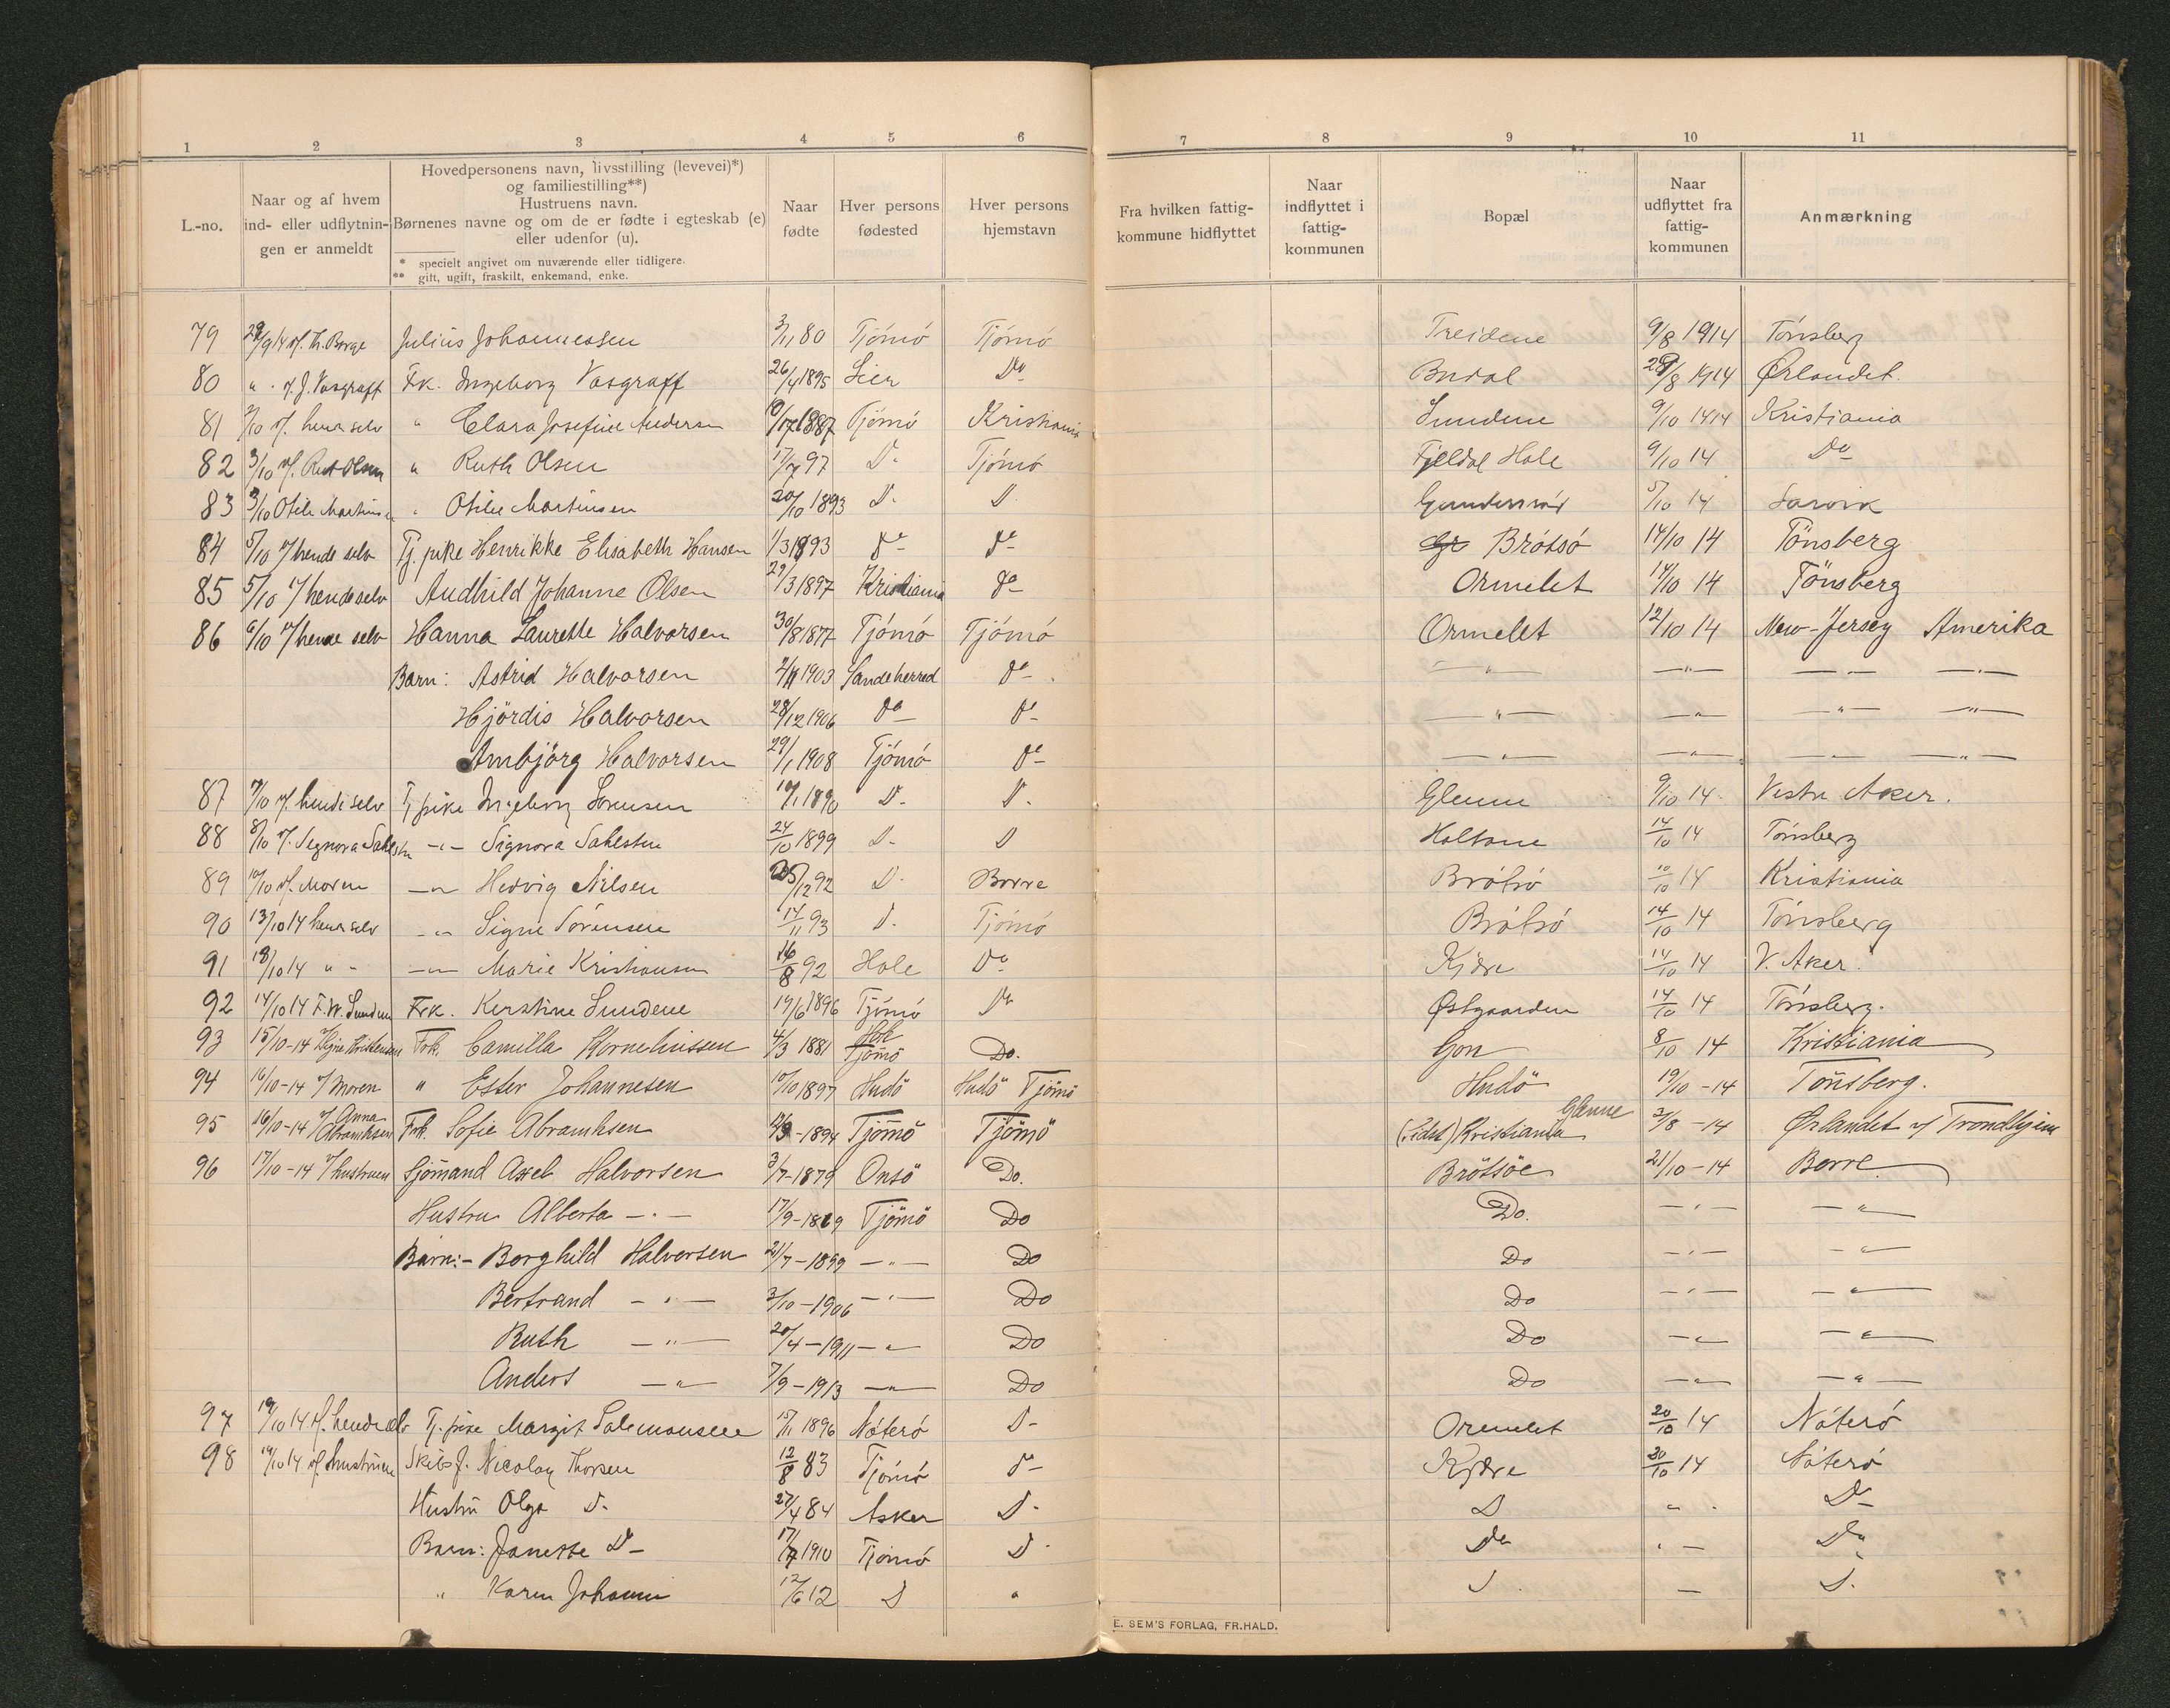 1 2 3 4 5 6 7 8 9 10 11
L.-no.
Naar og af hvem
ind- eller udflytnin-
gen er anmeldt
Hovedpersonens navn, livsstilling (levevei)*)
og familiestilling**)
Hustruens navn.
Børnenes navne og om de er fødte i egteskab (e)
eller udenfor (u).
* specielt angivet om nuværende eller tidligere.
** gift, ugift, fraskilt, enkemand, enke.
Naar
fødte
Hver persons
fødested
Hver persons
hjemstavn
Fra hvilken fattig-
kommune hidflyttet
Naar
indflyttet i
fattig-
kommunen
Bopæl
Naar
udflyttet fra
fattig-
kommunen
Anmærkning
79 Julius Johannessen 3/11 80 Tjömö Tjömö Treidene 9/8 1914 Tönsberg
80 " J. Vasgraff Frk. Ingeborg Vasgraff 26/4 1895 Lier Do Budal 29/8 1914 Ørlandet.
81 7/10 af hende selv " Clara Josefine Andersen 1887 Tjömö Kristiania Sundene 9/10 1914 Kristiania
82 3/10 af Rut Olsen " Ruth Olsen 17/7 97 Do Tjömö Fjeldal Hole 9/10 14 Do
83 3/10 Otilie Martinsen " Otilie Martinsen 20/10 1893 D. D. 5/10 14 Larvik
84 5/10 af hende selv Tj. pike Henrikke Elisabeth Hansen 1/3 1893 do do Brötsö 14/10 14 Tönsberg
85 5/10 af hende selv Audhild Johanne Olsen 29/3 1897 Kristiania do Ormelet 14/10 14 Tönsberg
86 6/10 af hende selv Hanna Laurette Halvorsen 30/8 1877 Tjömö Tjömö Ormelet 12/10 14 New-Jersey Amerika
Barn: Astrid Halvorsen 1903 Sandeherred do — " — — " — — " — — " —
Hjördis Halvorsen 28/12 1906 do do — " — — " — — " — — " —
Arnbjörg Halvorsen 29/1 1908 Tjömö do — " — — " — — " — — " —
87 7/10 af hende selv Tj pike Ingeborg Sörensen 1890 D. D. Glenne 9/10 14 Vestre Aker.
88 8/10 af Signora — " — Signora 24/10 1899 D. D Holtane 14/10 14 Tönsberg
89 10/10 af Moren — " — Hedvig Nilsen 25/12 92 D. Borre Brötsö 10/10 14 Kristiania
90 13/10 14 hende selv — " — Signe Sörensen 14/11 93 D. Tjömö Brötsö 14/10 14 Tönsberg
91 13/10 14 " " — " — Marie Kristiansen 16/8 92 Hole Do Kjære 14/10 14 V. Aker.
92 14/10 14 F.W. Sundene Frk. Kerstine Sundene 19/6 1896 Tjömö Do Østgaarden 14/10 14 Tönsberg.
93 15/10-14 Frk. Camilla Kornelinssen 4/3 1881 Hole Tjömö Do. Gon 8/10 14 Kristiania
94 16/10-14 af Moren " Ester Johannesen 10/10 1897 Hudö Hudö Tjömö Hudö 19/10 -14 Tönsberg.
95 16/10-14 af Anna Abramhsen Frk. Sofie Abramhsen -1894 Tjömö Tjömö (sidst) Kristiania Glenne 3/8 -14 Ørlandet af Trondhjem
96 17/10-14 af hustruen Sjömand Axel Halvorsen 3/7-1879 Onsö Do. Brötsöe 21/10-14 Borre
Hustru Alberta — " — 17/9- Tjömö Do Do. — " — — " —
Barn:- Borghild Halvorsen 21/7-1899 — " — Do Do — " — — " —
Bertrand — " — 3/10-1906 — " — Do Do — " — — " —
Ruth — " — 20/4-1911 — " — Do Do — " — — " —
Anders — " — 7/9-1913 — " — Do Do — " — — " —
97 19/10 14 af hende selv Tj. pike Margit Salomonsen 15/1 1896 Nöterö D- Ormelet 20/10 14 Nöterö
98 19/10 14 af hustruen Skibsf. Nicolay Thorsen 12/8 83 Tjömö do Kjære 20/10 14 Nöterö
Hustru Olga D. 27/4 84 Asker D. D " Do
Barn: Janette Do 1910 Tjömö D. Do " — Do
" Karen Johanne 12/6 12 D " D. — D.
E. SEM'S FORLAG, FR.HALD.